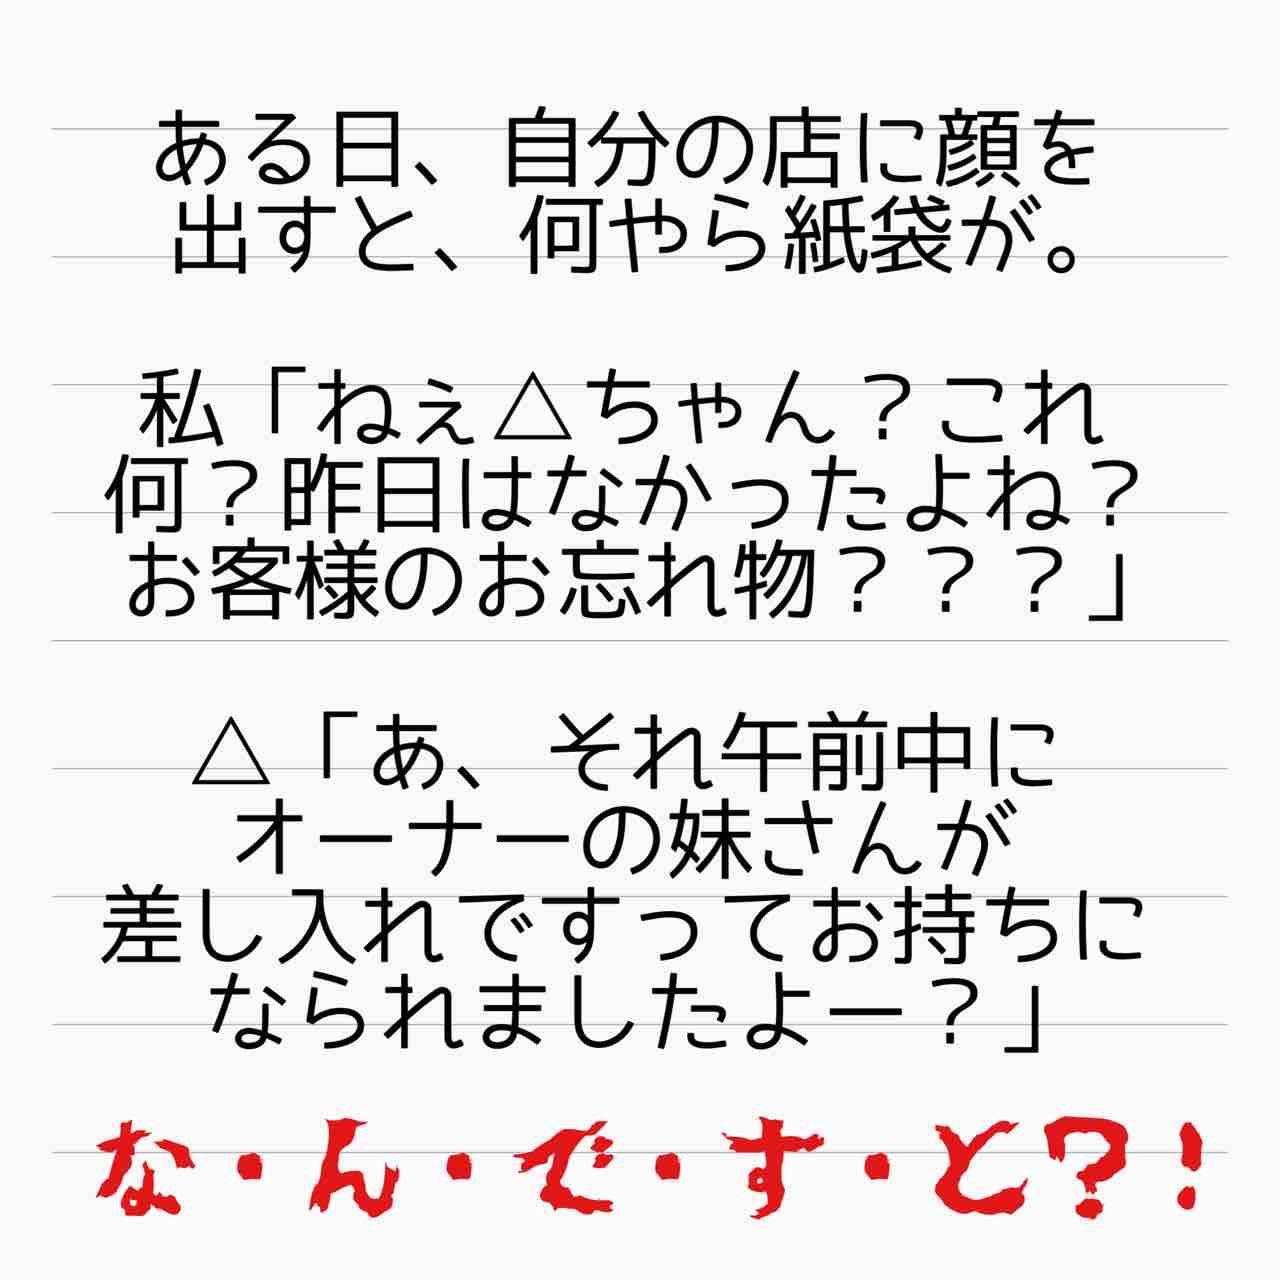 ある日、自分の店に顔を
出すと、何やら紙袋が。
私「ねぇ△ちゃん？これ
何？昨日はなかったよね？
お客様のお忘れ物？？？」
△「あ、それ午前中に
オーナーの妹さんが
差し入れですってお持ちに
なられましたよー？」
な・ん・で・す・と?!